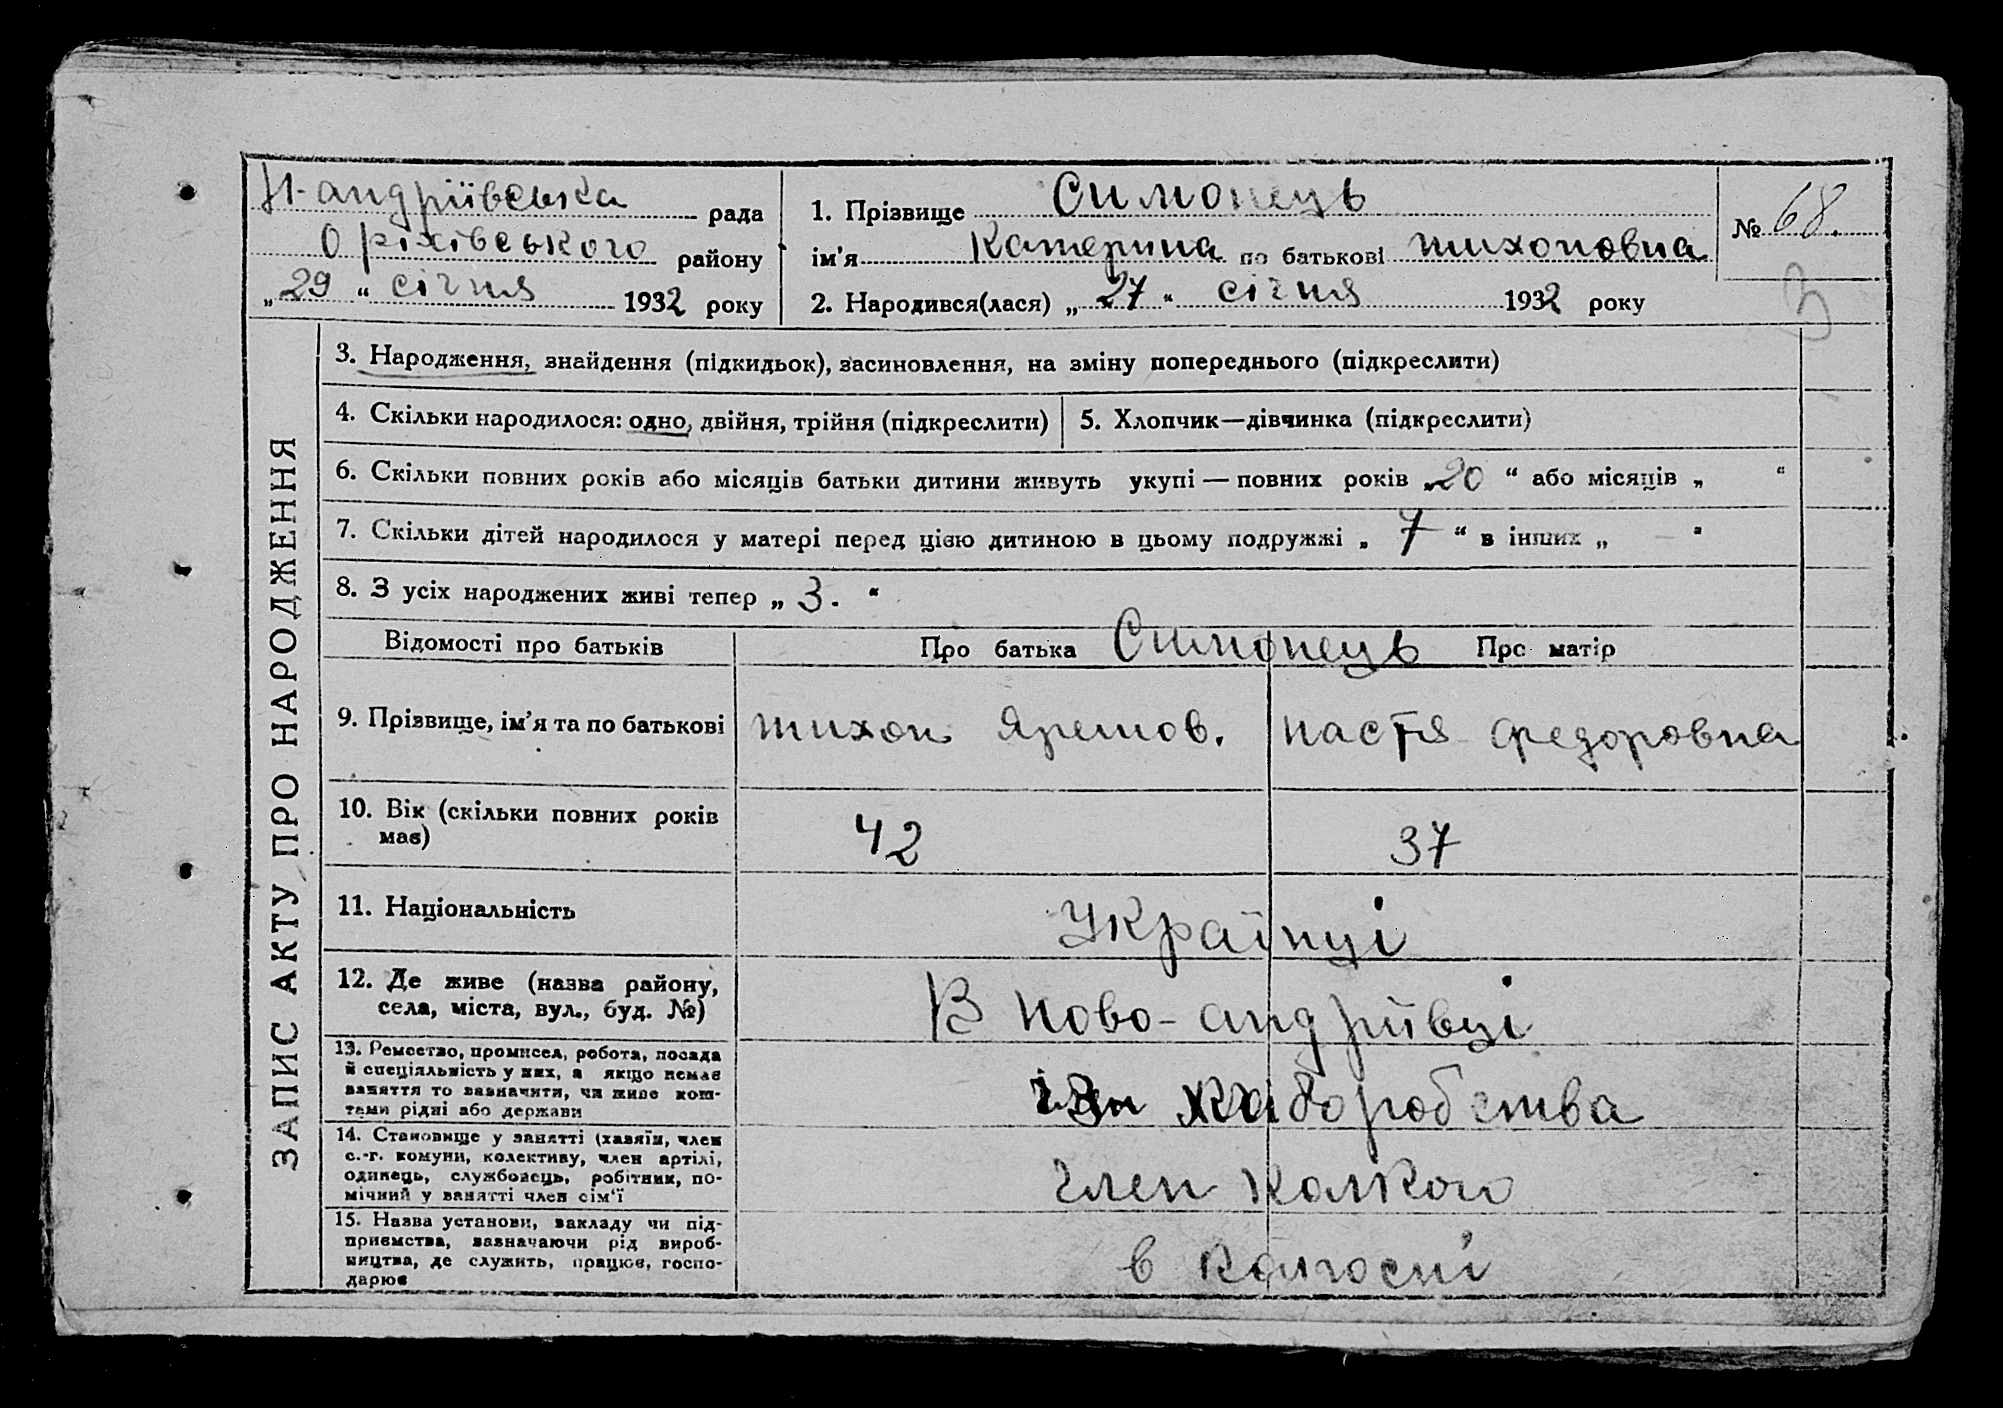 Н-андріївська рада
Оріхівського району
„29“ січня 1932 року
1. Прізвище Симонець
ім'я Катерина по батькові тихоновна
2. Народився(лася) „27“ січня 1932 року
№ 68.
3
ЗАПИС АКТУ ПРО НАРОДЖЕННЯ
3. Народження, знайдення (підкидьок), засиновлення, на зміну попереднього (підкреслити)
4. Скільки народилося: одно, двійня, трійня (підкреслити)
5. Хлопчик—дівчинка (підкреслити)
6. Скільки повних років або місяців батьки дитини живуть укупі — повних років „20“ або місяців „ “
7. Скільки дітей народилося у матері перед цією дитиною в цьому подружжі „7“ в інших „ — “
8. З усіх народжених живі тепер „3.“
Відомості про батьків Про батька Симонець Про матір
9. Прізвище, ім'я та по батькові тихон Яремов. настя федоровна
10. Вік (скільки повних років
має) 42 37
11. Національність Українці
12. Де живе (назва району,
села, міста, вул., буд. №) В ново-андріївці
13. Ремество, промисел, робота, посада
й спеціяльність у них, а якщо немає
заняття то зазначити, чи живе кош-
тами рідні або держави
хліборобства
14. Становище у занятті (хазяїн, член
с.-г. комуни, колективу, член артілі,
одинець, службовець, робітник, по-
мічний у занятті член сім'ї
член
15. Назва установи, закладу чи під-
приємства, зазначаючи рід вироб-
ництва, де служить, працює, госпо-
дарює
в колгоспі